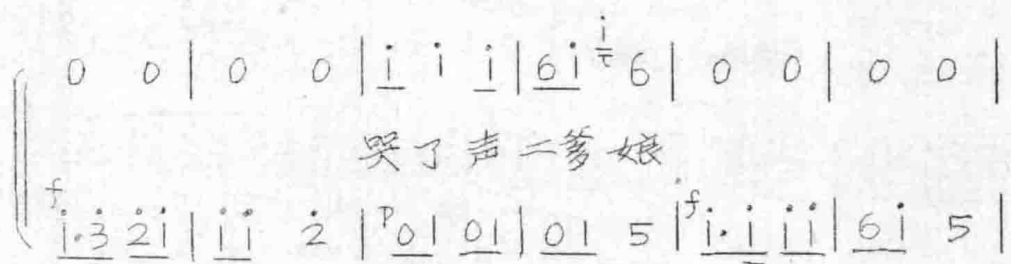 0 0 | 0 0 | i̇ i̇ i̇ | 6 i̇ i̇ 6 | 0 0 | 0 0 |
哭了声二爹娘
f i̇·3̇ 2̇i̇ | i̇i̇ 2̇ | p 01 01 | 01 5 | f i̇·i̇ i̇i̇ | 6i̇ 5 |